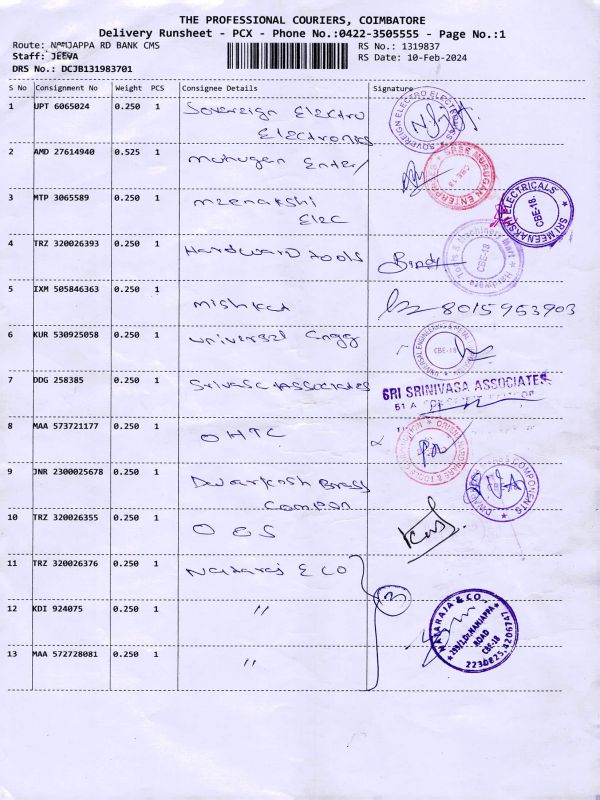 THE PROFESSIONAL COURIERS, COIMBATORE
Delivery Runsheet - PCX - Phone No.:0422-3505555 - Page No.:1
Route: NAMJAPPA RD BANK CMS
RS No.: 1319837
Staff: JEEVA
RS Date: 10-Feb-2024
DRS No.: DCJB131983701
S No Consignment No Weight PCS Consignee Details Signature
1 UPT 6065024 0.250 1 Sovereign Electro
Electronics
SOVEREIGN ELECTRO ELECTRONICS
2 AMD 27614940 0.525 1 Murugan Enter/
SREE MURUGAN ENTERPRISES CBE-18
3 MTP 3065589 0.250 1 Meenakshi
Elec
SRI MEENAKSHI ELECTRICALS CBE-18.
4 TRZ 320026393 0.250 1 Hardward tools
Hardware Tools & Machinery Mart CBE-18
5 IXM 505846363 0.250 1
8015953903
6 KUR 530925058 0.250 1 Universal Engg
UNIVERSAL ENGINEERING & METAL CBE-18
7 DDG 258385 0.250 1 Srivasc Associates
SRI SRINIVASA ASSOCIATES
51 A
8 MAA 573721177 0.250 1 OHTC
9 JNR 2300025678 0.250 1 Dwarkesh Brass
Compon
COMPONENTS
10 TRZ 320026355 0.250 1 O E S
11 TRZ 320026376 0.250 1 Nataraj & CO
3
12 KDI 924075 0.250 1 "
NATARAJA & CO.
299/1,DR.NANJAPPA
ROAD
CBE-18
2230825,4206747
13 MAA 572728081 0.250 1 "